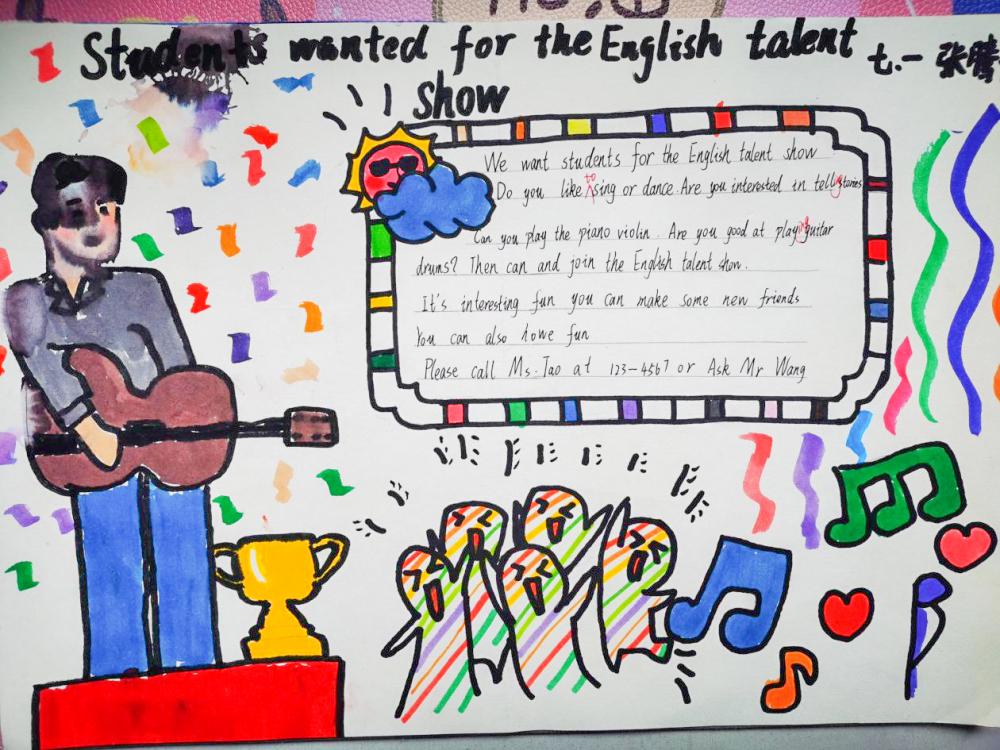 Students wanted for the English talent
七.一 张腾
show
We want students for the English talent show
Do you like to sing or dance. Are you interested in tellstories
Can you play the piano violin. Are you good at playing guitar
drums? Then can and join the English talent show.
It's interesting fun you can make some new friends
You can also howe fun
Please call Ms.Jao at 123-4567 or Ask Mr Wang